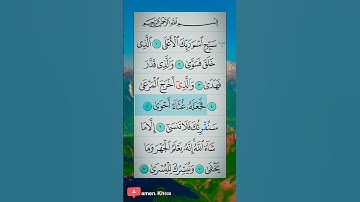 بِسْمِ اللَّهِ الرَّحْمَٰنِ الرَّحِيمِ
سَبِّحِ اسْمَ رَبِّكَ الْأَعْلَى ١ الَّذِي
خَلَقَ فَسَوَّىٰ ٢ وَالَّذِي قَدَّرَ
فَهَدَىٰ ٣ وَالَّذِي أَخْرَجَ الْمَرْعَىٰ
٤ فَجَعَلَهُ غُثَاءً أَحْوَىٰ ٥
سَنُقْرِئُكَ فَلَا تَنسَىٰ ٦ إِلَّا مَا
شَاءَ اللَّهُ إِنَّهُ يَعْلَمُ الْجَهْرَ وَمَا
يَخْفَىٰ ٧ وَنُيَسِّرُكَ لِلْيُسْرَىٰ ٨
amen.Khan